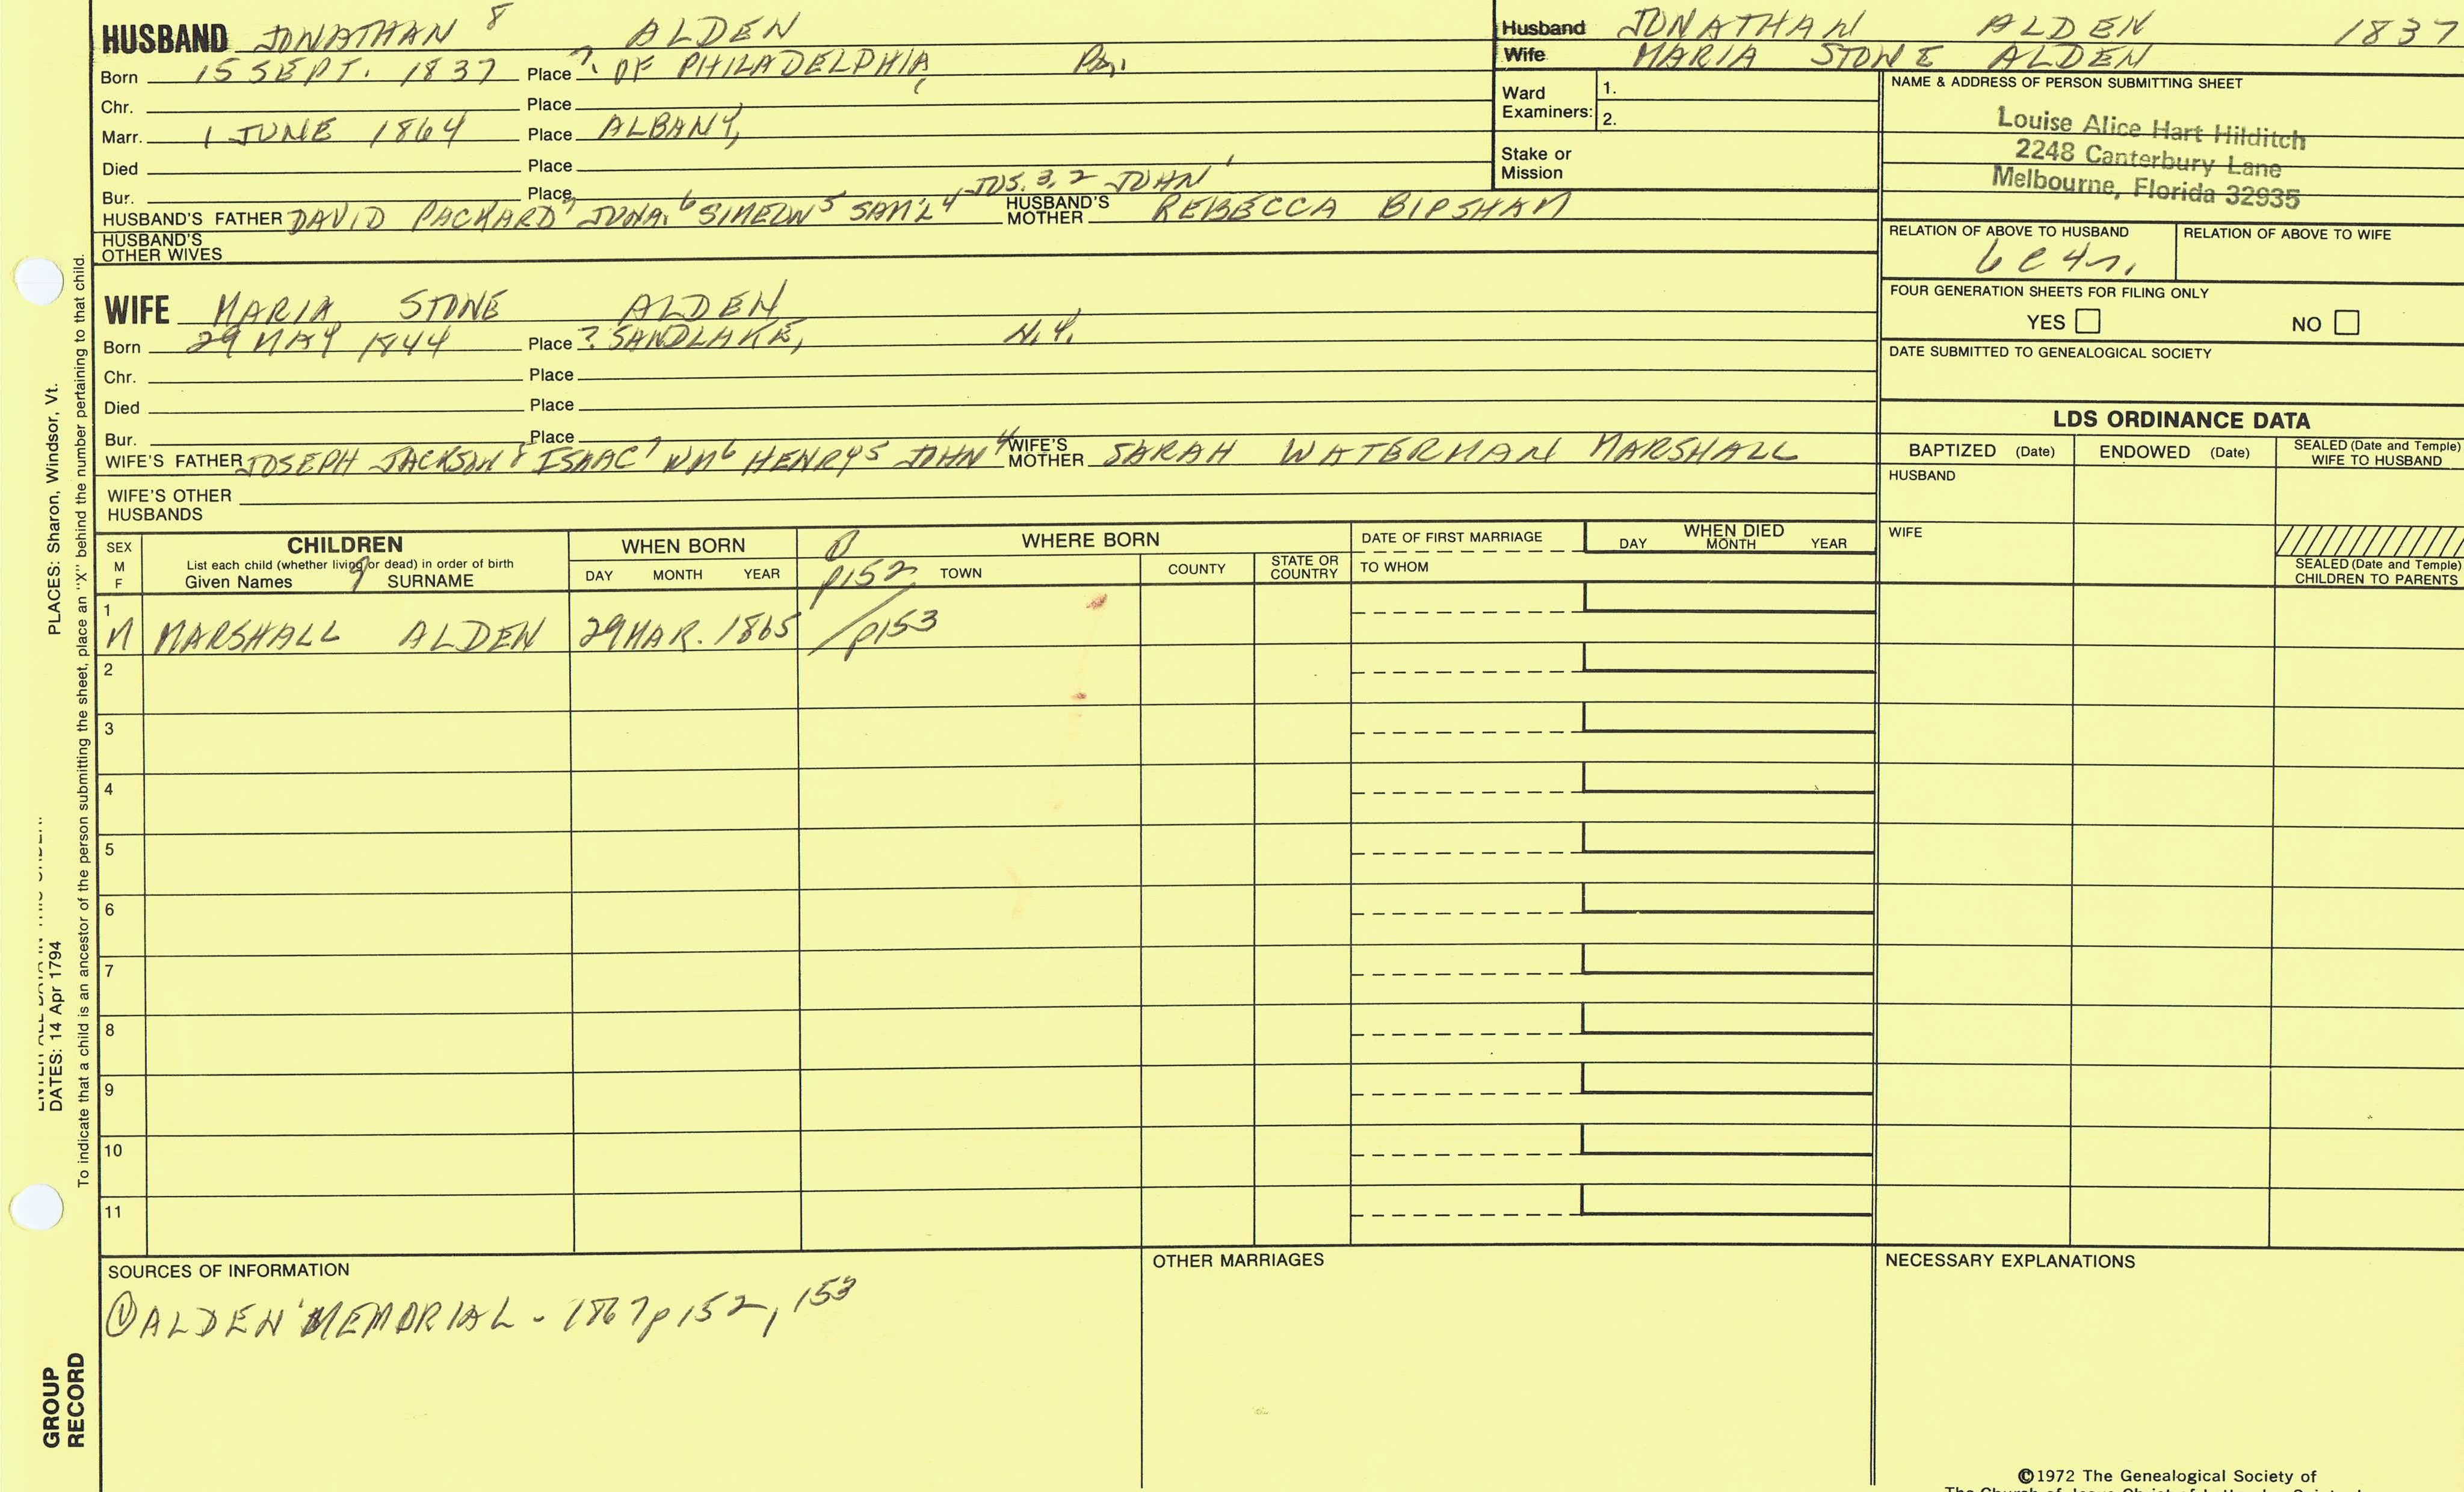 HUSBAND JONATHAN 8 ALDEN
Born 15 SEPT. 1837 Place ? OF PHILADELPHIA, Pa.
Chr. Place
Marr. 1 JUNE 1864 Place ALBANY,
Died Place
Bur. Place
HUSBAND'S FATHER DAVID PACKARD 7 JONA. 6 SIMEON 5 SAM'L 4 JOS. 3, 2 JOHN 1 HUSBAND'S MOTHER REBECCA BIPSHAM
HUSBAND'S OTHER WIVES
WIFE MARIA STONE ALDEN
Born 29 MAY 1844 Place ? SANDLAKE, N.Y.
Chr. Place
Died Place
Bur. Place
WIFE'S FATHER JOSEPH JACKSON 8 ISAAC 7 WM 6 HENRY 5 JOHN 4 WIFE'S MOTHER SARAH WATERMAN MARSHALL
WIFE'S OTHER HUSBANDS
Husband JONATHAN ALDEN 1837
Wife MARIA STONE ALDEN
Ward Examiners: 1.
2.
Stake or Mission
NAME & ADDRESS OF PERSON SUBMITTING SHEET
Louise Alice Hart Hilditch
2248 Canterbury Lane
Melbourne, Florida 32935
RELATION OF ABOVE TO HUSBAND RELATION OF ABOVE TO WIFE
6 C 4 r.
FOUR GENERATION SHEETS FOR FILING ONLY
YES NO
DATE SUBMITTED TO GENEALOGICAL SOCIETY
LDS ORDINANCE DATA
BAPTIZED (Date) ENDOWED (Date) SEALED (Date and Temple) WIFE TO HUSBAND
HUSBAND
WIFE
SEALED (Date and Temple) CHILDREN TO PARENTS
SEX M F
CHILDREN
List each child (whether living or dead) in order of birth
Given Names 9 SURNAME
WHEN BORN
DAY MONTH YEAR
WHERE BORN
p152 TOWN COUNTY STATE OR COUNTRY
DATE OF FIRST MARRIAGE
TO WHOM
WHEN DIED
DAY MONTH YEAR
1
M MARSHALL ALDEN 29 MAR. 1865 /p153
2
3
4
5
6
7
8
9
10
11
SOURCES OF INFORMATION
① ALDEN MEMORIAL - 1867 p152, 153
OTHER MARRIAGES
NECESSARY EXPLANATIONS
©1972 The Genealogical Society of
PLACES: Sharon, Windsor, Vt.
DATES: 14 Apr 1794
To indicate that a child is an ancestor of the person submitting the sheet, place an "X" behind the number pertaining to that child.
GROUP
RECORD